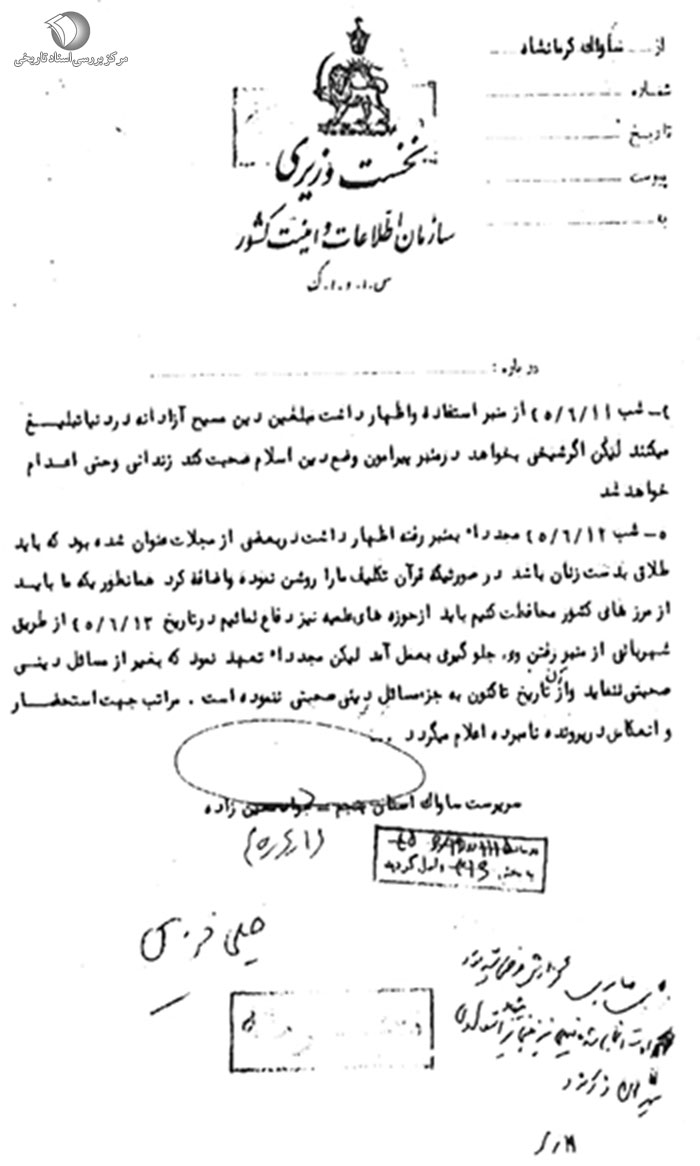 مرکز بررسی اسناد تاریخی
از ساواك کرمانشاه
شماره
تاریخ
پیوست
به
نخست وزیری
سازمان اطلاعات و امنیت کشور
س.ا.و.ا.ك
درباره :
٤ـ شب ٤٥/٦/١١ از منبر استفاده واظهار داشت مبلغین دین مسیح آزادانه دردنیا تبلیــغ
میکنند لیکن اگرشیخی بخواهد درمنبر پیرامون وضع دین اسلام صحبت کند زندانی وحتی اعدام
خواهد شد
٥ـ شب ٤٥/٦/١٢ مجدداً بمنبر رفته اظهار داشت دربعضی از مجلات عنوان شده بود که باید
طلاق بدست زنان باشد در صورتیکه قرآن تکلیف مارا روشن نموده واضافه کرد همانطور یکه ما بایــد
از مرز های کشور محافظت کنیم باید ازحوزه های علمیه نیز دفاع نمائیم درتاریخ ٤٥/٦/١٣ از طریق
شهربانی از منبر رفتن وی جلو گیری بعمل آمد لیکن مجدداً تعهد نمود که بغیر از مسائل دینــی
صحبتی ننماید واز آن تاریخ تاکنون به جزمسائل دینی صحبتی ننموده است . مراتب جهت استحضــار
و انعکاس درپرونده نامبرده اعلام میگردد ...
سرپرست ساواك استان پنجم ـ جواد معین زاده
به بخش ٣١٦ واصل گردید